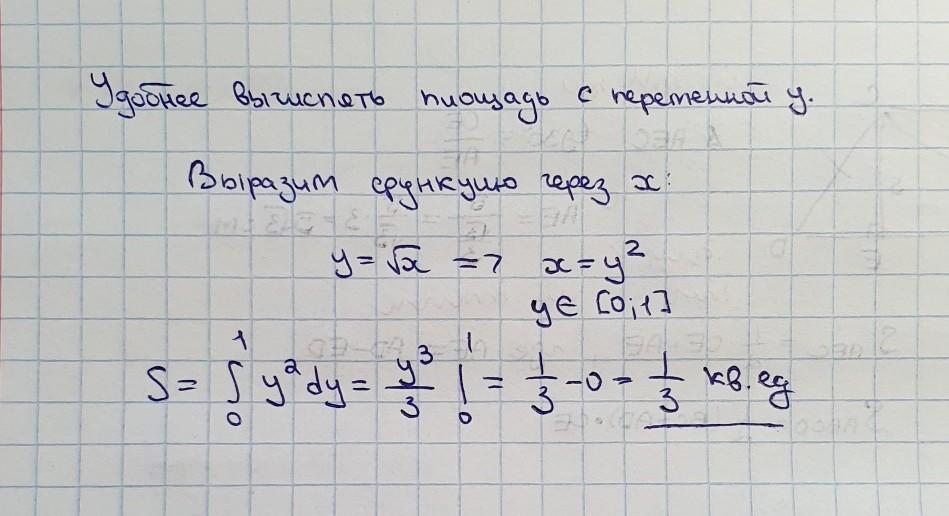 Удобнее вычислять площадь с переменной y.
Выразим функцию через x:
y = √x => x = y²
y ∈ [0;1]
S = ∫₀¹ y² dy = y³/3 |₀¹ = 1/3 - 0 = 1/3 кв. ед